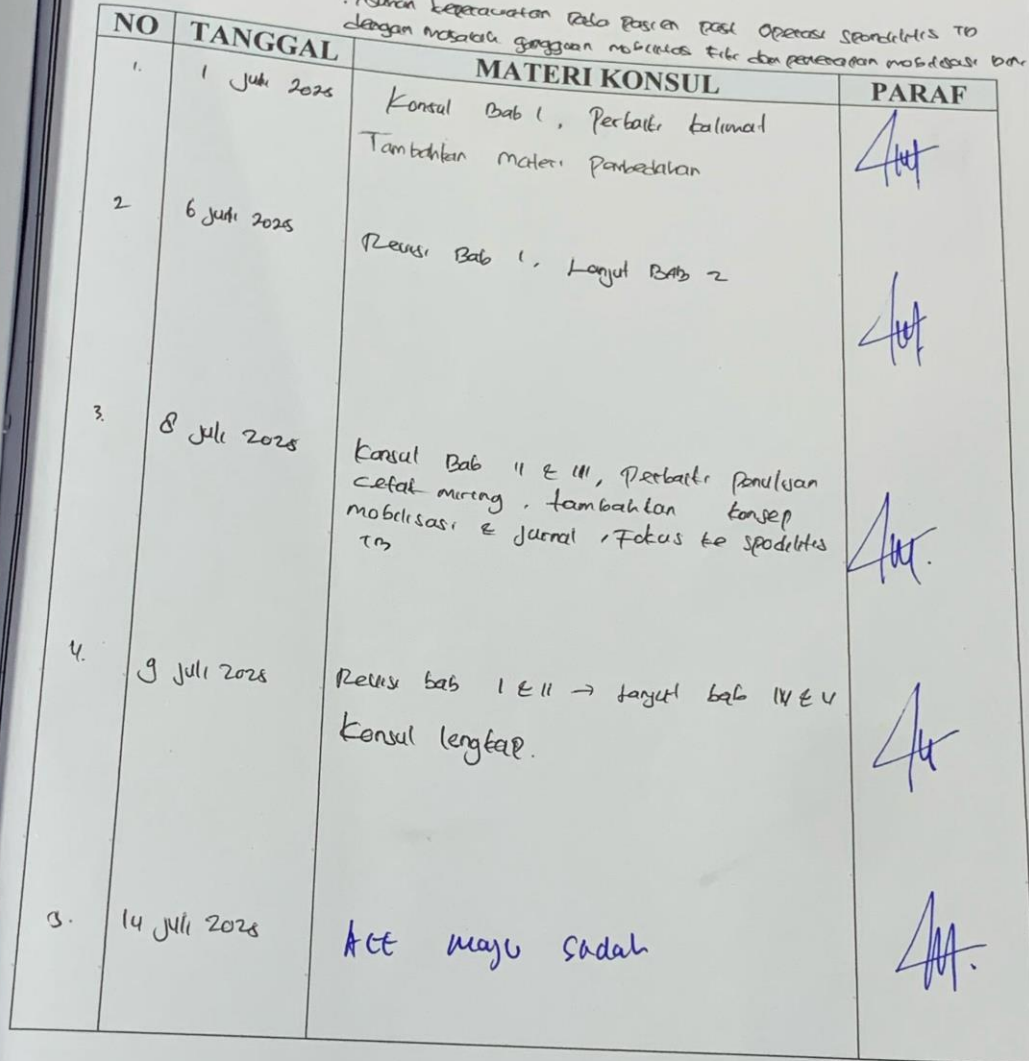 Keperawatan Pada Pasien Post Operasi Spondilitis TB
dengan masalah gangguan mobilitas fisik dan penerapan mobilisasi
NO TANGGAL MATERI KONSUL PARAF
1. 1 Juli 2025 Konsul Bab 1, Perbaiki kalimat
Tambahkan materi Pembedahan
2 6 Juli 2025 Revisi Bab 1, Lanjut BAB 2
3. 8 Juli 2025 Konsul Bab II & III, Perbaiki Penulisan
Cetak miring, tambahkan konsep
mobilisasi & Jurnal, Fokus ke spodilitis
TB
4. 9 Juli 2025 Revisi bab I & II → lanjut bab IV & V
Konsul lengkap.
14 Juli 2025 ACC maju sidah